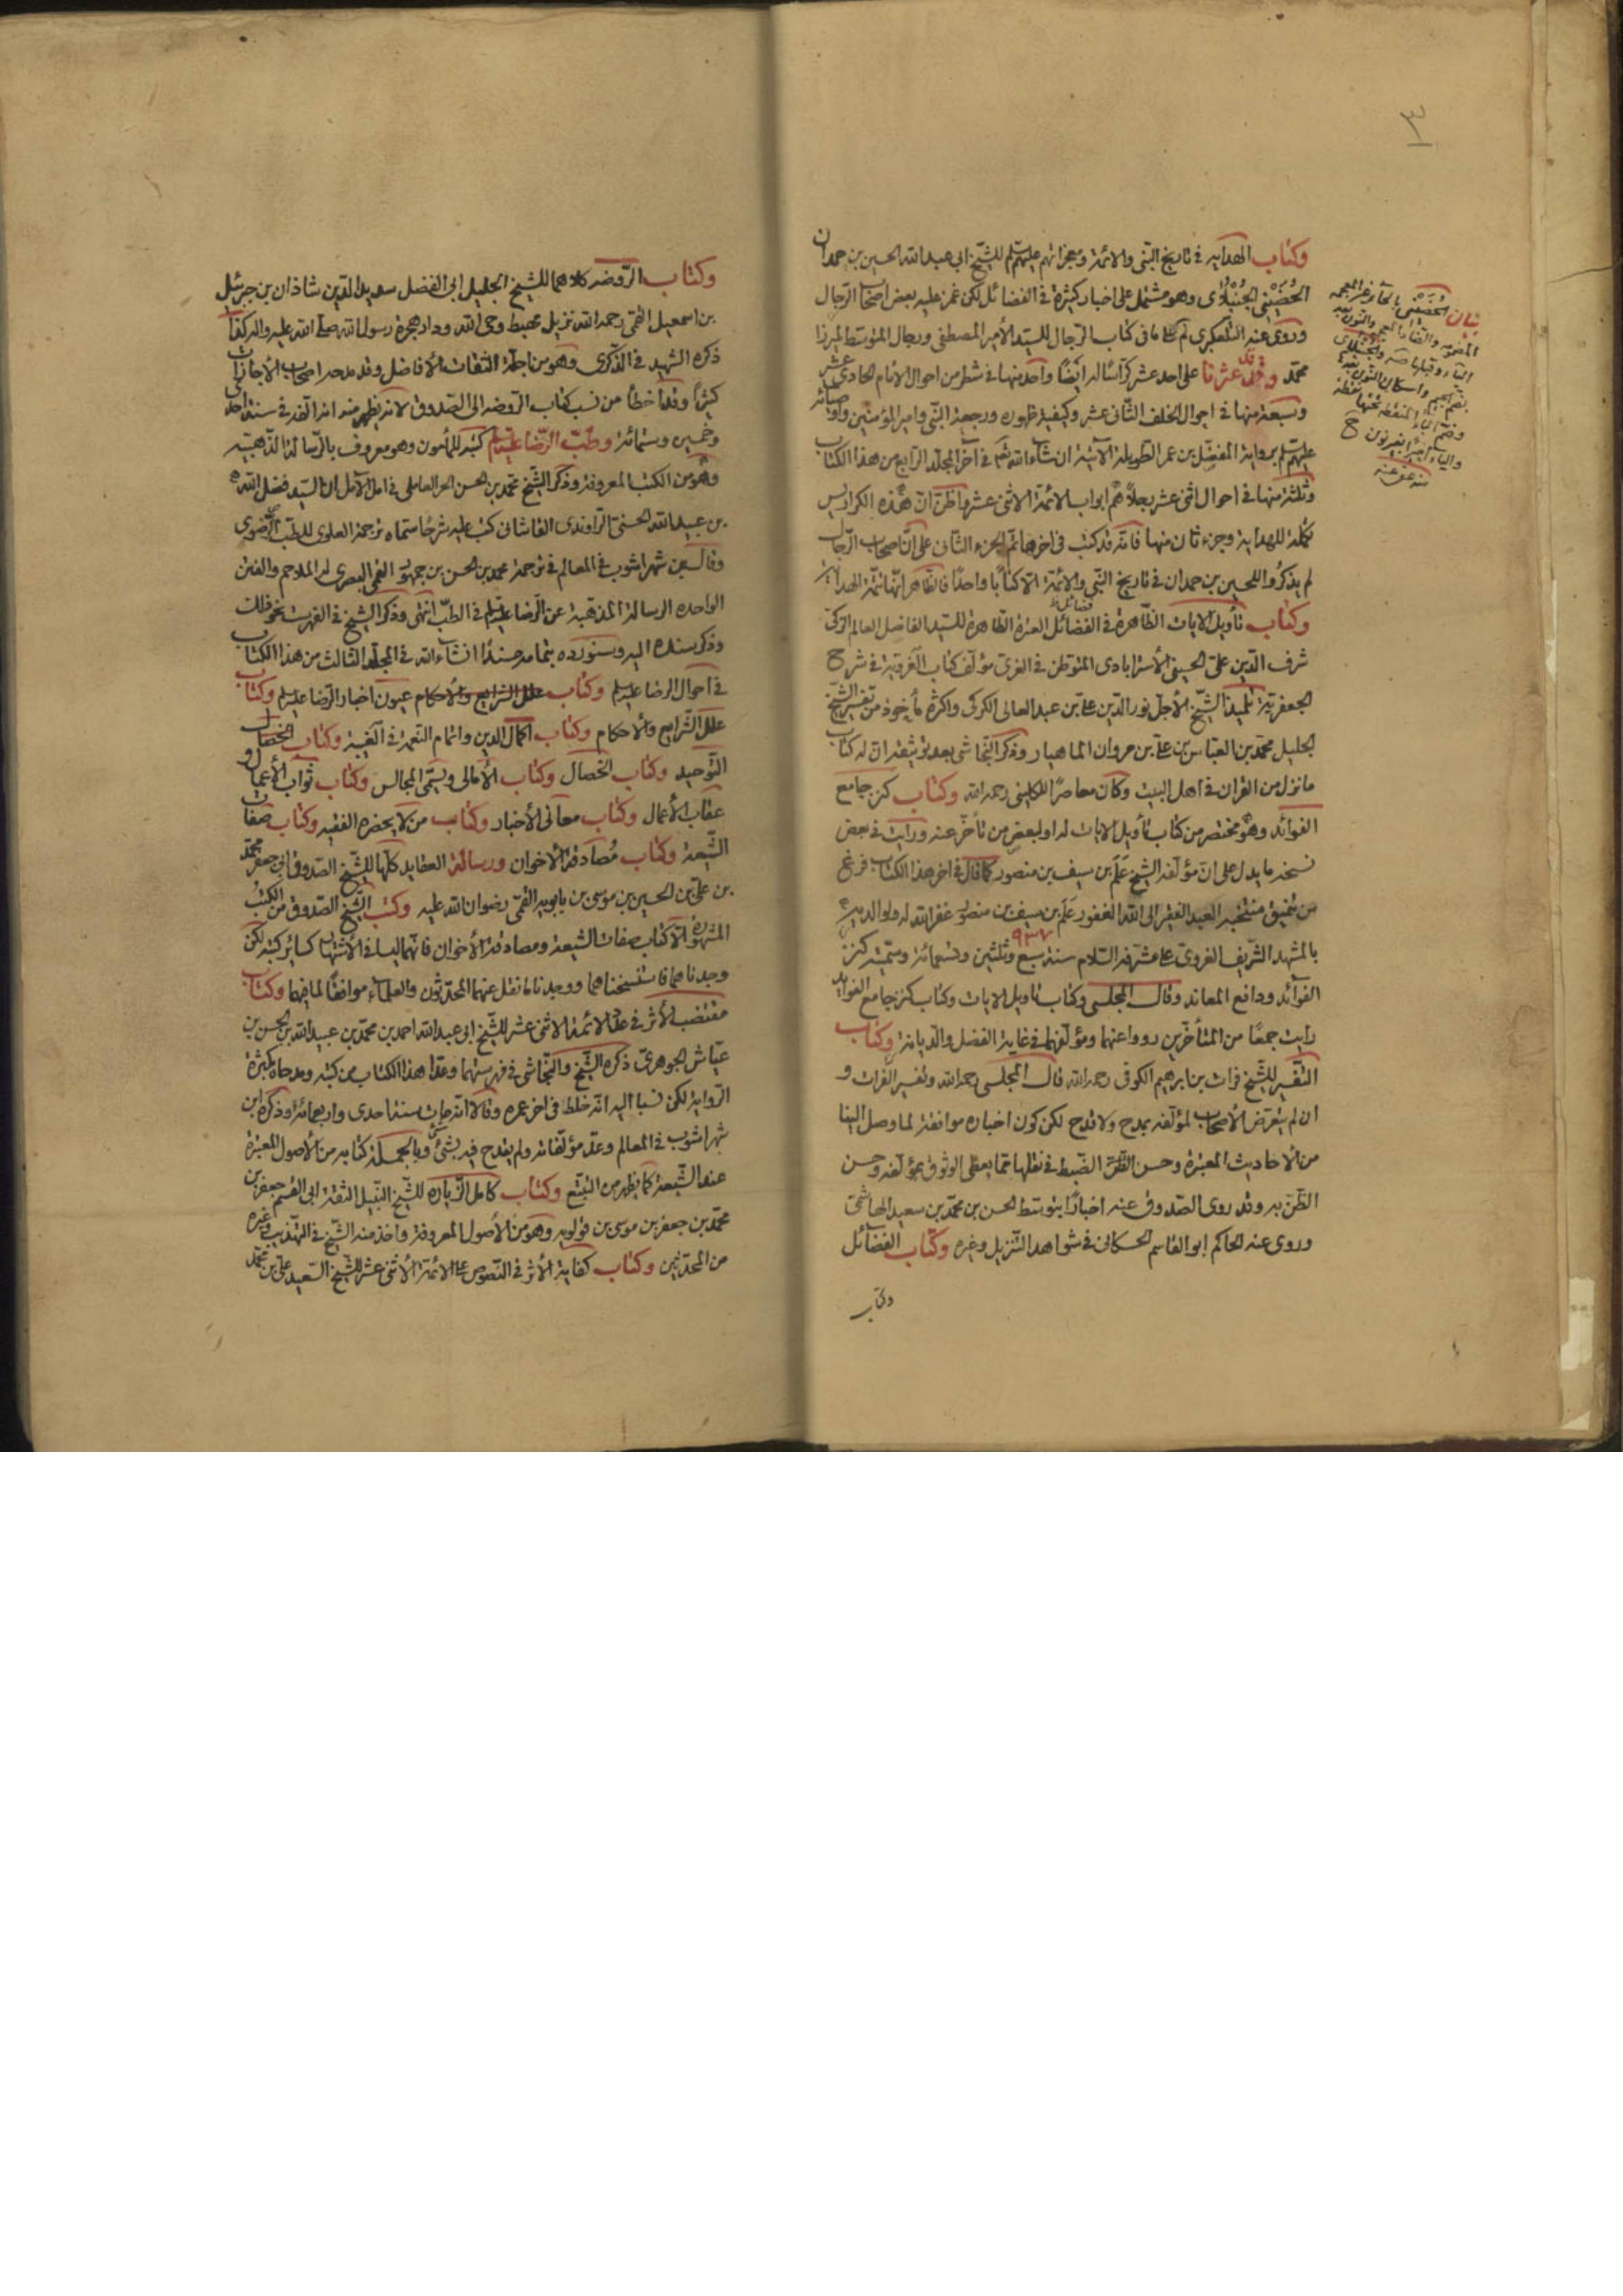 ٣
وكتاب الهداية في تاريخ النبي والائمة ومعجزاتهم عليهم للشيخ ابي عبد الله الحسين بن حمدان
الحُضَيْني الجُنْبُلاني وهو مشتمل على اخبار كثيرة في الفضائل لكن غمز عليه بعض اصحاب الرجال
وروى عنه التلعكبري كما في كتاب الرجال للسيد الأمير المصطفى ورجال المتوسط لميرزا
محمد وقد عثرنا على احد عشر كراسًا له ايضًا واحد منها في شطر من احوال الامام الحادي عشر
وسبعة منها في احوال الخلف الثاني عشر وكيفية ظهوره ورجعة النبي وامير المؤمنين واوصيائه
عليهم برواية المفضل بن عمر الطويلة الآتية ان شاء الله تعالى في آخر المجلد الرابع من هذا الكتاب
وثلثة منها في احوال اثنى عشر رجلاً هم ابواب لائمة الاثنى عشر واظن ان هذه الكراريس
تكملة للهداية وجزء ثان منها فانه قد كتب في اخرها تم الجزء الثاني على ان اصحاب الرجال
لم يذكروا للحسين بن حمدان في تاريخ النبي والائمة الا كتابًا واحدًا فالظاهر انها تتمة الهداية
وكتاب تأويل الايات الظاهرة في الفضائل العترة الطاهرة للسيد الفاضل العالم الزكي
فضائل
شرف الدين علي الحسيني الأسترابادي المتوطن في الغري مؤلف كتاب الغروية في شرح
الجعفرية تلميذ الشيخ الأجل نور الدين علي بن عبد العالي الكركي واكثره مأخوذ من تفسير الشيخ
الجليل محمد بن العباس بن علي بن مروان الماهيار وذكر النجاشي بعد توثيقه ان له كتاب
ما نزل من القران في اهل البيت وكان معاصرًا للكليني رحمه الله وكتاب كنز جامع
الفوائد وهو مختصر من كتاب تأويل الايات له او لبعض من تأخر عنه ورايت في بعض
نسخه ما يدل على ان مؤلفه الشيخ عَلَم بن سيف بن منصور كما قال في اخر هذا الكتاب فرغ
من تنميق منتخبه العبد الفقير الى الله الغفور عَلَم بن سيف بن منصور غفر الله له ولوالديه
٩٣٧
بالمشهد الشريف الغروي على مشرفه السلام سنة سبع وثلثين وتسعمائة وسميته كنز
الفوائد ودافع المعاند وقال المجلسي وكتاب تأويل الايات وكتاب كنز جامع الفوايد
رايت جمعًا من المتأخرين رووا عنهما ومؤلفهما في غاية الفضل والديانة وكتاب
التفسير للشيخ فرات بن ابرهيم الكوفي رحمه الله قال المجلسي رحمه الله وتفسير الفرات و
ان لم يتعرض الأصحاب لمؤلفه بمدح ولا قدح لكن كون اخباره موافقة لما وصل الينا
من الاحاديث المعتبرة وحسن الضبط في نقلها مما يعطى الوثوق بمؤلفه وحسن
الظن به وقد روى الصدوق عنه اخبارًا بتوسط الحسن بن محمد بن سعيد الهاشمي
وروى عنه الحاكم ابو القاسم الحسكاني في شواهد التنزيل وغيره وكتاب الفضائل
وكتاب
بيان الحُضَيْني بالحاء غير المعجمة
المضمومة والضاد المعجمة والنون بعد
الياء وقبلها
بضم الجيم واسكان النون بعدها
وضم الباء المنقطة تحتها نقطة
منه عفي عنه
وكتاب الروضه كلاهما للشيخ الجليل ابي الفضل سديد الدين شاذان بن جبرئيل
بن اسمعيل القمي رحمه الله نزيل مهبط وحي الله ودار هجرة رسول الله صلى الله عليه واله كذا
ذكره الشهيد في الذكرى وهو من اجلة الثقات الأفاضل وقد مدحه اصحاب الأجازات
كثيرًا وقد اخطأ من نسب كتاب الروضه الى الصدوق لانه يظهر منه انه الفه في سنة احدى
وخمسين وستمائة وطب الرضا عليه السلم كتبه للمأمون وهو معروف بالرسالة الذهبية
وهو من الكتب المعروفة وذكر الشيخ محمد بن الحسن الحر العاملي في امل الآمل ان السيد فضل الله
بن علي بن عبيد الله الحسني الراوندي القاشاني كتب عليه شرحًا سماه ترجمة العلوي للطب الرضوي
وقال ابن شهراشوب في المعالم في ترجمة محمد بن الحسن بن جمهور القمي البصري له الملاحم والفتن
الواحده الرسالة المذهبة عن الرضا عليه السلم في الطب انتهى وذكر الشيخ في الفهرست نحو ذلك
وذكر سنده اليه وسنورده بتمامه مسندًا انشاء الله في المجلد الثالث من هذا الكتاب
في احوال الرضا عليه السلم وكتاب علل الشرايع والأحكام عيون اخبار الرضا عليه السلم وكتاب
علل الشرايع والأحكام وكتاب اكمال الدين واتمام النعمة في الغيبة وكتاب الخصال
التوحيد وكتاب الخصال وكتاب الأمالي ويسمى المجالس وكتاب ثواب الأعمال و
عقاب الأعمال وكتاب معاني الأخبار وكتاب من لا يحضره الفقيه وكتاب صفات
الشيعة وكتاب مُصادقة الأخوان ورسالة العقايد كلها للشيخ الصدوق ابي جعفر محمد
بن علي بن الحسين بن موسى بن بابويه القمي رضوان الله عليه وكتب الشيخ الصدوق من الكتب
المشهورة الا كتاب صفات الشيعة ومصادقة الأخوان فانهما ليسا في الأشتهار كسائر كتبه لكن
وجدناهما فاستنسخناهما ووجدنا ما نقل عنهما المحدثون والعلماء موافقًا لما فيهما وكتاب
مقتضب الأثر في عدد الائمة الاثنى عشر للشيخ ابي عبد الله احمد بن محمد بن عبيد الله بن الحسن بن
عياش الجوهري ذكره الشيخ والنجاشي في فهرستهما وعدا هذا الكتاب من كتبه ومدحاه بكثرة
الرواية لكن نسبا اليه انه خلط في اخر عمره وقالا انه مات سنة احدى واربعمائة وذكره ابن
شهراشوب في المعالم وعد مؤلفاته ولم يقدح فيه بشئ وبالجملة كتابه من الأصول المعتبرة
عند الشيعة كما يظهر من التتبع وكتاب كامل الزياره للشيخ النبيل الثقة ابي القسم جعفر بن
محمد بن جعفر بن موسى بن قولويه وهو من الأصول المعروفة واخذ منه الشيخ في التهذيب وغيره
من المحدثين وكتاب كفاية الأثر في النصوص على الائمة الاثنى عشر للشيخ السعيد علي بن محمد